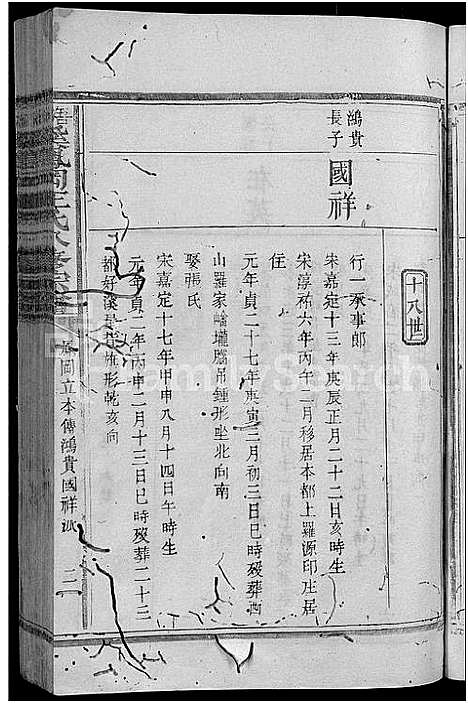 十八世
鴻貴
長子
國祥
行一承事郎
宋嘉定十三年庚辰正月二十二日亥時生
宋淳祐六年丙午二月移居本都上羅源印庄居
住
元年貞二十七年庚寅三月初三日巳時歿葬西
山羅家畬壠騰吊鍾形坐北向南
娶張氏
宋嘉定十七年甲申八月十四日午時生
元年貞二年丙申二月十三日巳時歿葬二十三
都好溪 形乾亥向
岡立本傳鴻貴國祥派
FamilySearch